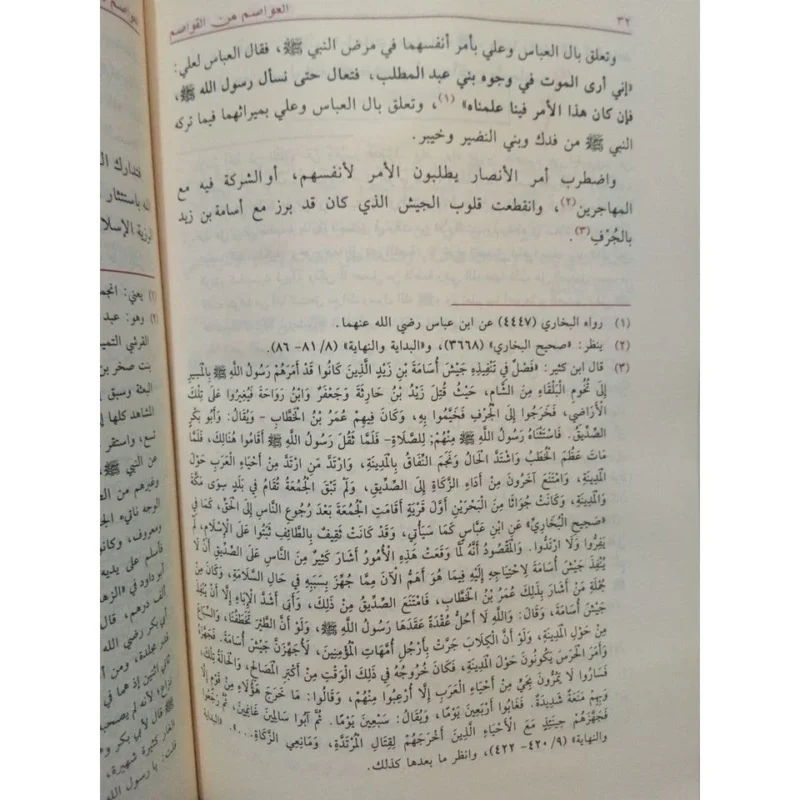 ٣٢
العواصم من القواصم
وتعلق بال العباس وعلي بأمر أنفسهما في مرض النبي ﷺ، فقال العباس لعلي:
«إني أرى الموت في وجوه بني عبد المطلب، فتعال حتى نسأل رسول الله ﷺ،
فإن كان هذا الأمر فينا علمناه» (١)، وتعلق بال العباس وعلي بميراثهما فيما تركه
النبي ﷺ من فدك وبني النضير وخيبر.
واضطرب أمر الأنصار يطلبون الأمر لأنفسهم، أو الشركة فيه مع
المهاجرين(٢)، وانقطعت قلوب الجيش الذي كان قد برز مع أسامة بن زيد
بالجُرْفِ(٣).
(١) رواه البخاري (٤٤٤٧) عن ابن عباس رضي الله عنهما.
(٢) ينظر: «صحيح البخاري» (٣٦٦٨)، و«البداية والنهاية» (٨/ ٨١- ٨٦).
(٣) قال ابن كثير: «فَصْلٌ فِي تَنْفِيذِهِ جَيْشَ أُسَامَةَ بْنِ زَيْدٍ الَّذِينَ كَانُوا قَدْ أَمَرَهُمْ رَسُولُ اللَّهِ ﷺ بِالْمَسِيرِ
إِلَى تُخُومِ الْبَلْقَاءِ مِنَ الشَّامِ، حَيْثُ قُتِلَ زَيْدُ بْنُ حَارِثَةَ وَجَعْفَرٌ وَابْنُ رَوَاحَةَ فَيُغِيرُوا عَلَى تِلْكَ
الْأَرَاضِي، فَخَرَجُوا إِلَى الْجُرْفِ فَخَيَّمُوا بِهِ، وَكَانَ فِيهِمْ عُمَرُ بْنُ الْخَطَّابِ - وَيُقَالُ: وَأَبُو بَكْرٍ
الصِّدِّيقُ. فَاسْتَثْنَاهُ رَسُولُ اللَّهِ ﷺ مِنْهُمْ؛ لِلصَّلَاةِ- فَلَمَّا ثَقُلَ رَسُولُ اللَّهِ ﷺ أَقَامُوا هُنَالِكَ، فَلَمَّا
مَاتَ عَظُمَ الْخَطْبُ وَاشْتَدَّ الْحَالُ وَنَجَمَ النِّفَاقُ بِالْمَدِينَةِ، وَارْتَدَّ مَنِ ارْتَدَّ مِنْ أَحْيَاءِ الْعَرَبِ حَوْلَ
الْمَدِينَةِ، وَامْتَنَعَ آخَرُونَ مِنْ أَدَاءِ الزَّكَاةِ إِلَى الصِّدِّيقِ، وَلَمْ تَبْقَ الْجُمُعَةُ تُقَامُ فِي بَلَدٍ سِوَى مَكَّةَ
وَالْمَدِينَةِ، وَكَانَتْ جُوَاثَا مِنَ الْبَحْرَيْنِ أَوَّلَ قَرْيَةٍ أَقَامَتِ الْجُمُعَةَ بَعْدَ رُجُوعِ النَّاسِ إِلَى الْحَقِّ، كَمَا فِي
«صَحِيحِ الْبُخَارِيِّ» عَنِ ابْنِ عَبَّاسٍ كَمَا سَيَأْتِي، وَقَدْ كَانَتْ ثَقِيفٌ بِالطَّائِفِ ثَبَتُوا عَلَى الْإِسْلَامِ، لَمْ
يَفِرُّوا وَلَا ارْتَدُّوا. وَالْمَقْصُودُ أَنَّهُ لَمَّا وَقَعَتْ هَذِهِ الْأُمُورُ أَشَارَ كَثِيرٌ مِنَ النَّاسِ عَلَى الصِّدِّيقِ أَنْ لَا
يُنْفِذَ جَيْشَ أُسَامَةَ لِاحْتِيَاجِهِ إِلَيْهِ فِيمَا هُوَ أَهَمُّ الْآنَ مِمَّا جُهِّزَ بِسَبَبِهِ فِي حَالِ السَّلَامَةِ، وَكَانَ مِنْ
جُمْلَةِ مَنْ أَشَارَ بِذَلِكَ عُمَرُ بْنُ الْخَطَّابِ، فَامْتَنَعَ الصِّدِّيقُ مِنْ ذَلِكَ، وَأَبَى أَشَدَّ الْإِبَاءِ إِلَّا أَنْ يُنْفِذَ
جَيْشَ أُسَامَةَ، وَقَالَ: وَاللَّهِ لَا أَحُلُّ عُقْدَةً عَقَدَهَا رَسُولُ اللَّهِ ﷺ، وَلَوْ أَنَّ الطَّيْرَ تَخَطَّفُنَا، وَالسِّبَاعَ
مِنْ حَوْلِ الْمَدِينَةِ، وَلَوْ أَنَّ الْكِلَابَ جَرَّتْ بِأَرْجُلِ أُمَّهَاتِ الْمُؤْمِنِينَ، لَأُجَهِّزَنَّ جَيْشَ أُسَامَةَ. فَجَهَّزَهُ
وَأَمَرَ الْحَرَسَ يَكُونُونَ حَوْلَ الْمَدِينَةِ، فَكَانَ خُرُوجُهُ فِي ذَلِكَ الْوَقْتِ مِنْ أَكْبَرِ الْمَصَالِحِ، وَالْحَالَةُ تِلْكَ،
فَسَارُوا لَا يَمُرُّونَ بِحَيٍّ مِنْ أَحْيَاءِ الْعَرَبِ إِلَّا أُرْعِبُوا مِنْهُمْ، وَقَالُوا: مَا خَرَجَ هَؤُلَاءِ مِنْ قَوْمٍ إِلَّا
وَبِهِمْ مَنَعَةٌ شَدِيدَةٌ. فَغَابُوا أَرْبَعِينَ يَوْمًا، وَيُقَالُ: سَبْعِينَ يَوْمًا. ثُمَّ آبُوا سَالِمِينَ غَانِمِينَ، ثُمَّ رَجَعُوا
فَجَهَّزَهُمْ حِينَئِذٍ مَعَ الْأَحْيَاءِ الَّذِينَ أَخْرَجَهُمْ لِقِتَالِ الْمُرْتَدَّةِ، وَمَانِعِي الزَّكَاةِ...». «البداية
والنهاية» (٩/ ٤٢٠- ٤٢٢)، وانظر ما بعدها كذلك.